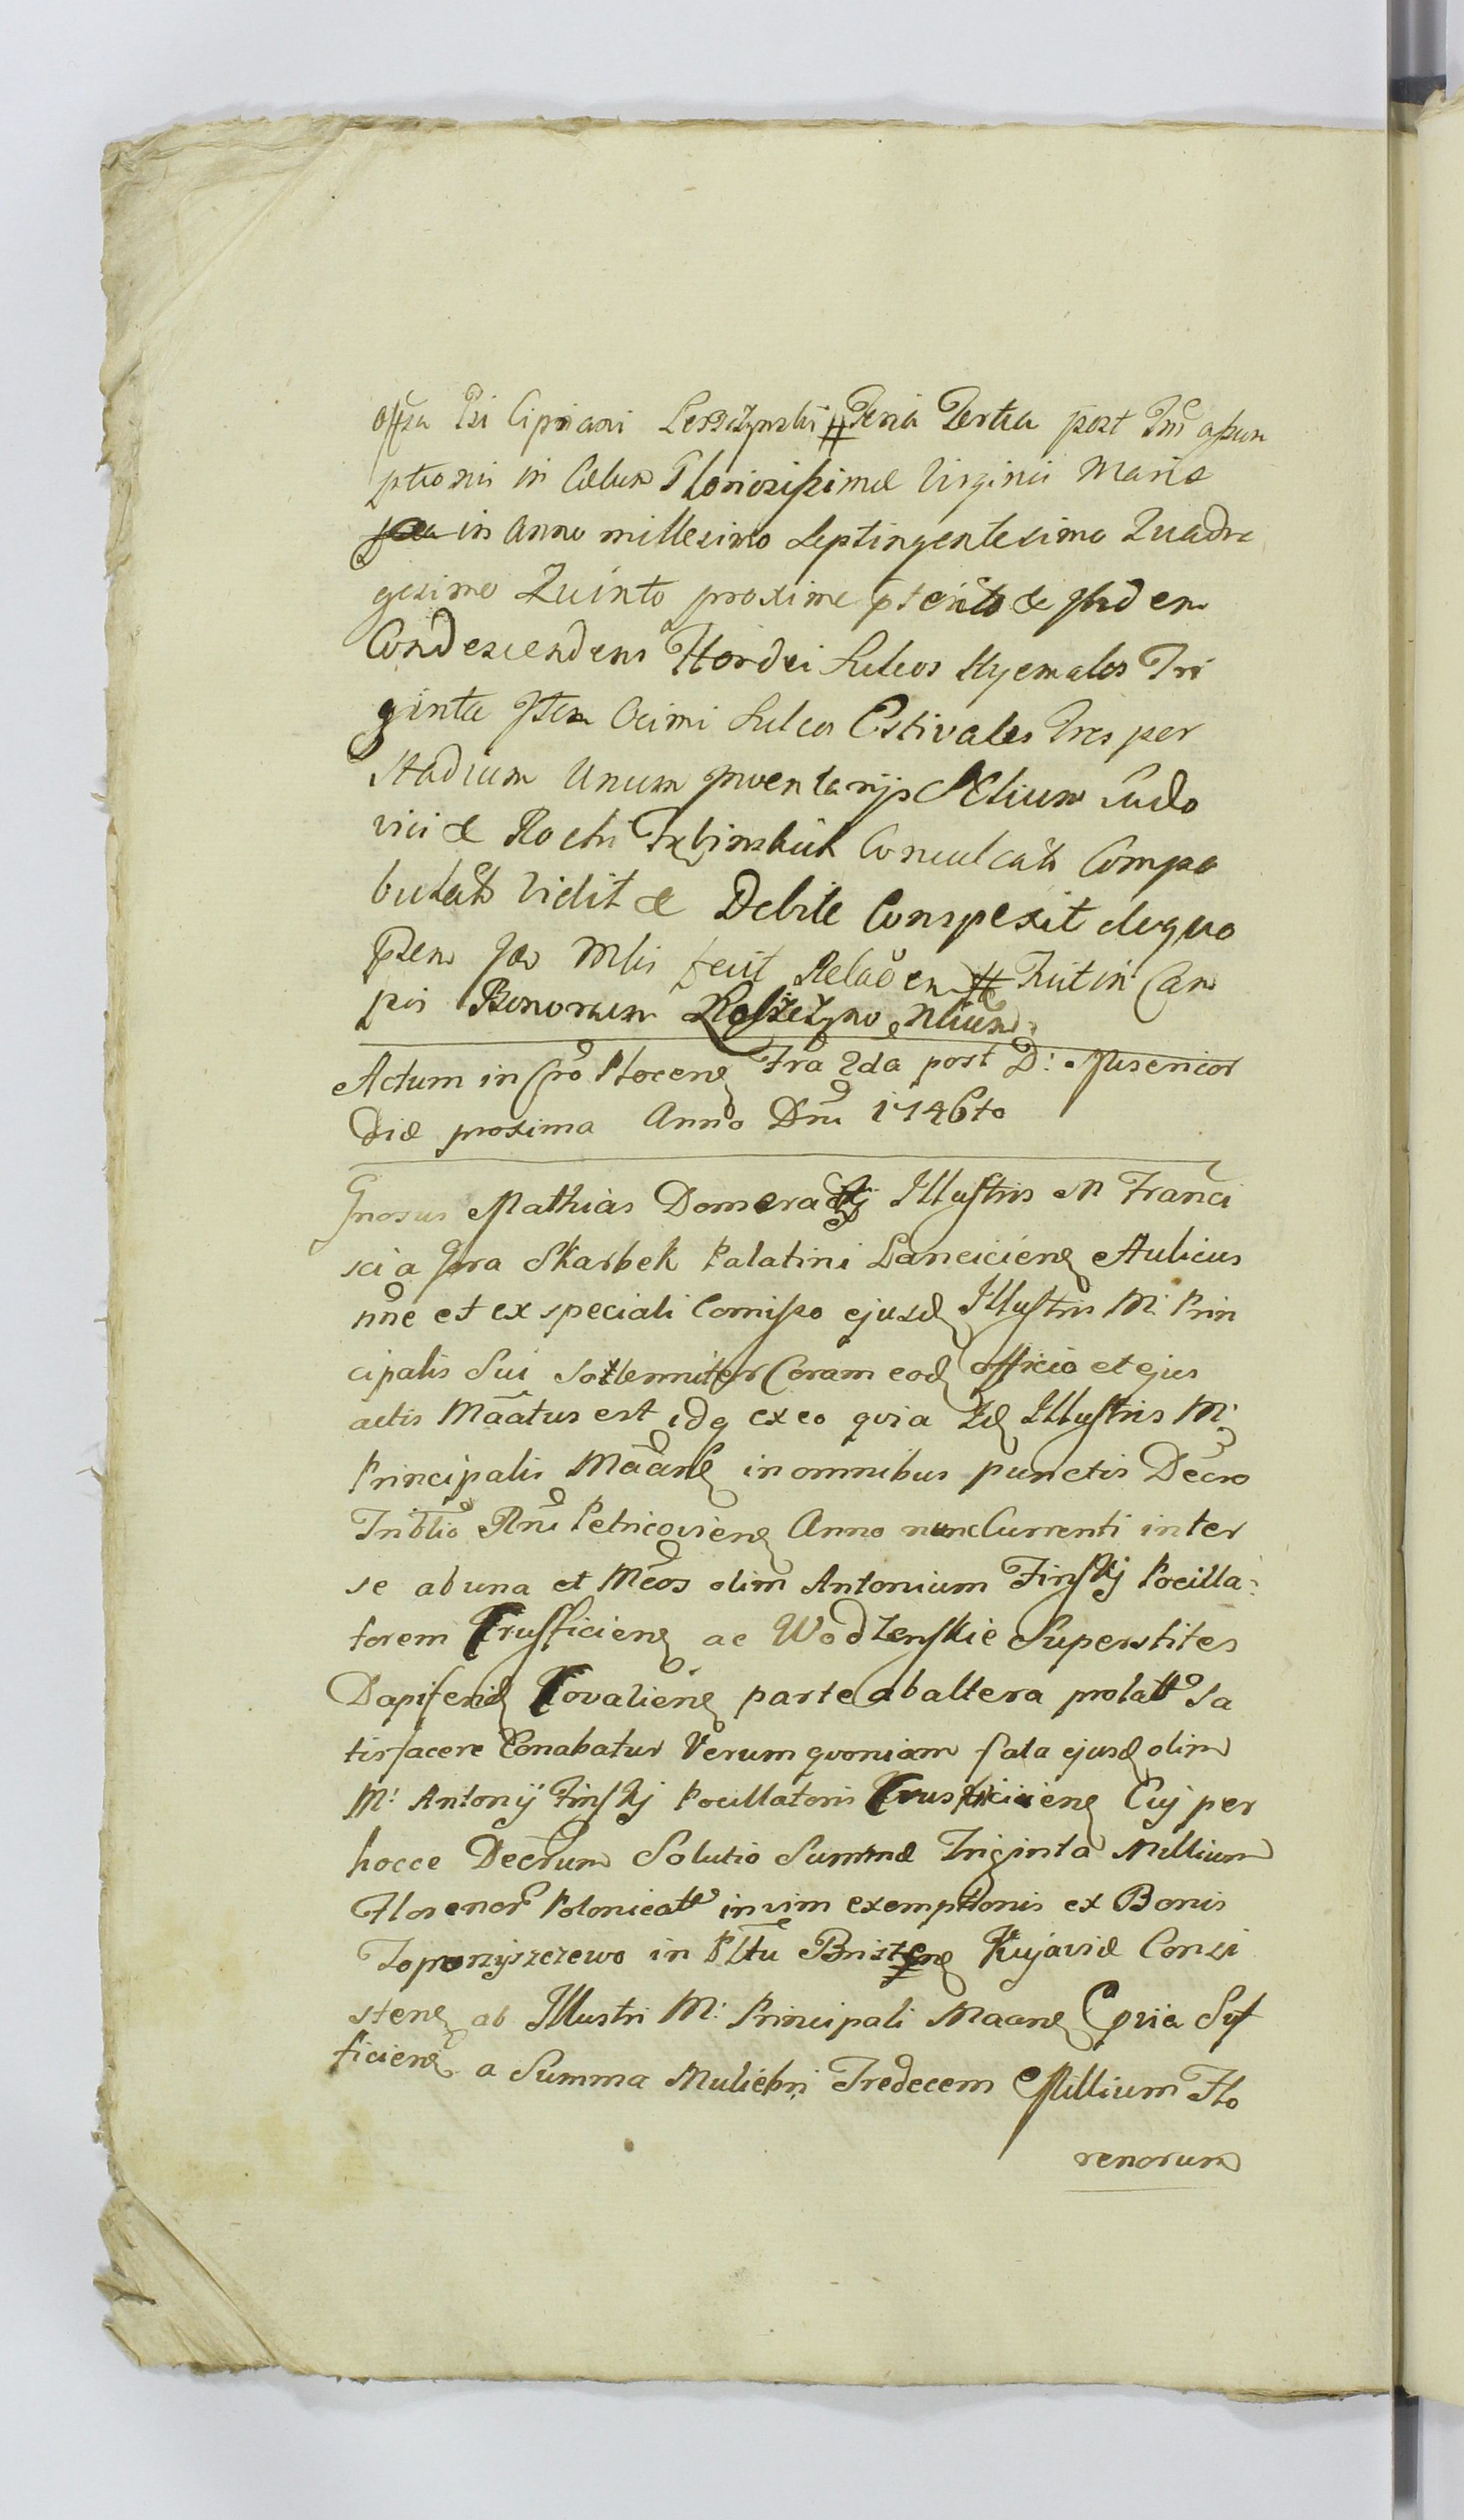 Cipriani Leszczynski # Feria Tertia post
ptionis in Cælum Gloriosissimæ Virginis Mariæ
in Anno millesimo Septingentesimo Quadra
gesimo Quinto proxime & ibidem
Condescendens Hordei Sulcos Hyemales Tri
ginta Item Sulcos Estivales Tres per
Stadium Unum Inventarijs Ludo
vici & Rochi Conculcat Compa
butat Vidit & Debite Conspexit de quo
fecit Relaõem # Fuit in Cam
pis Bonorum
Actum in Cro Plocens Fra 2da post D: Misericor
diæ proxima Anno Dni 1746to
Gnosus Mathias Domeradzkj Illustris M Franci
sci a Gora Skarbek Palatini Lanciciens Aulicus
nõe et ex speciali Comisso ejusd Illustris M: Prin
cipalis Sui Sollenniter Coram eod officio et ejus
actis Maãtus est idq ex eo qvia Id Illustris M:
Principalis Maãns in omnibus punctis Decro
Tribtio Rni Petricoviens Anno nunc Currenti inter
se ab una et Mcos olim Antonium Finskj Pocilla:
torem Crusficiens ac Wodzenskie Superstites
Dapiferid Covaliens parte ab altera prolatt Sa
tisfacere Conabatur Verum qvoniam fata ejusd olim
M: Antonij Finskj Pocillatoris Crusficiens Cuj per
hocce Decrum Solutio Summæ Triginta Millium
Florenor Polonicatt in vim exemptionis ex Bonis
Toporzyszczewo in Pltu Bristens Kujaviæ Consi
stens ab Illustri M: Principali Maans Qvia Suf
ficiens a Summa Muliebri Tredecem Millium Flo
renorum